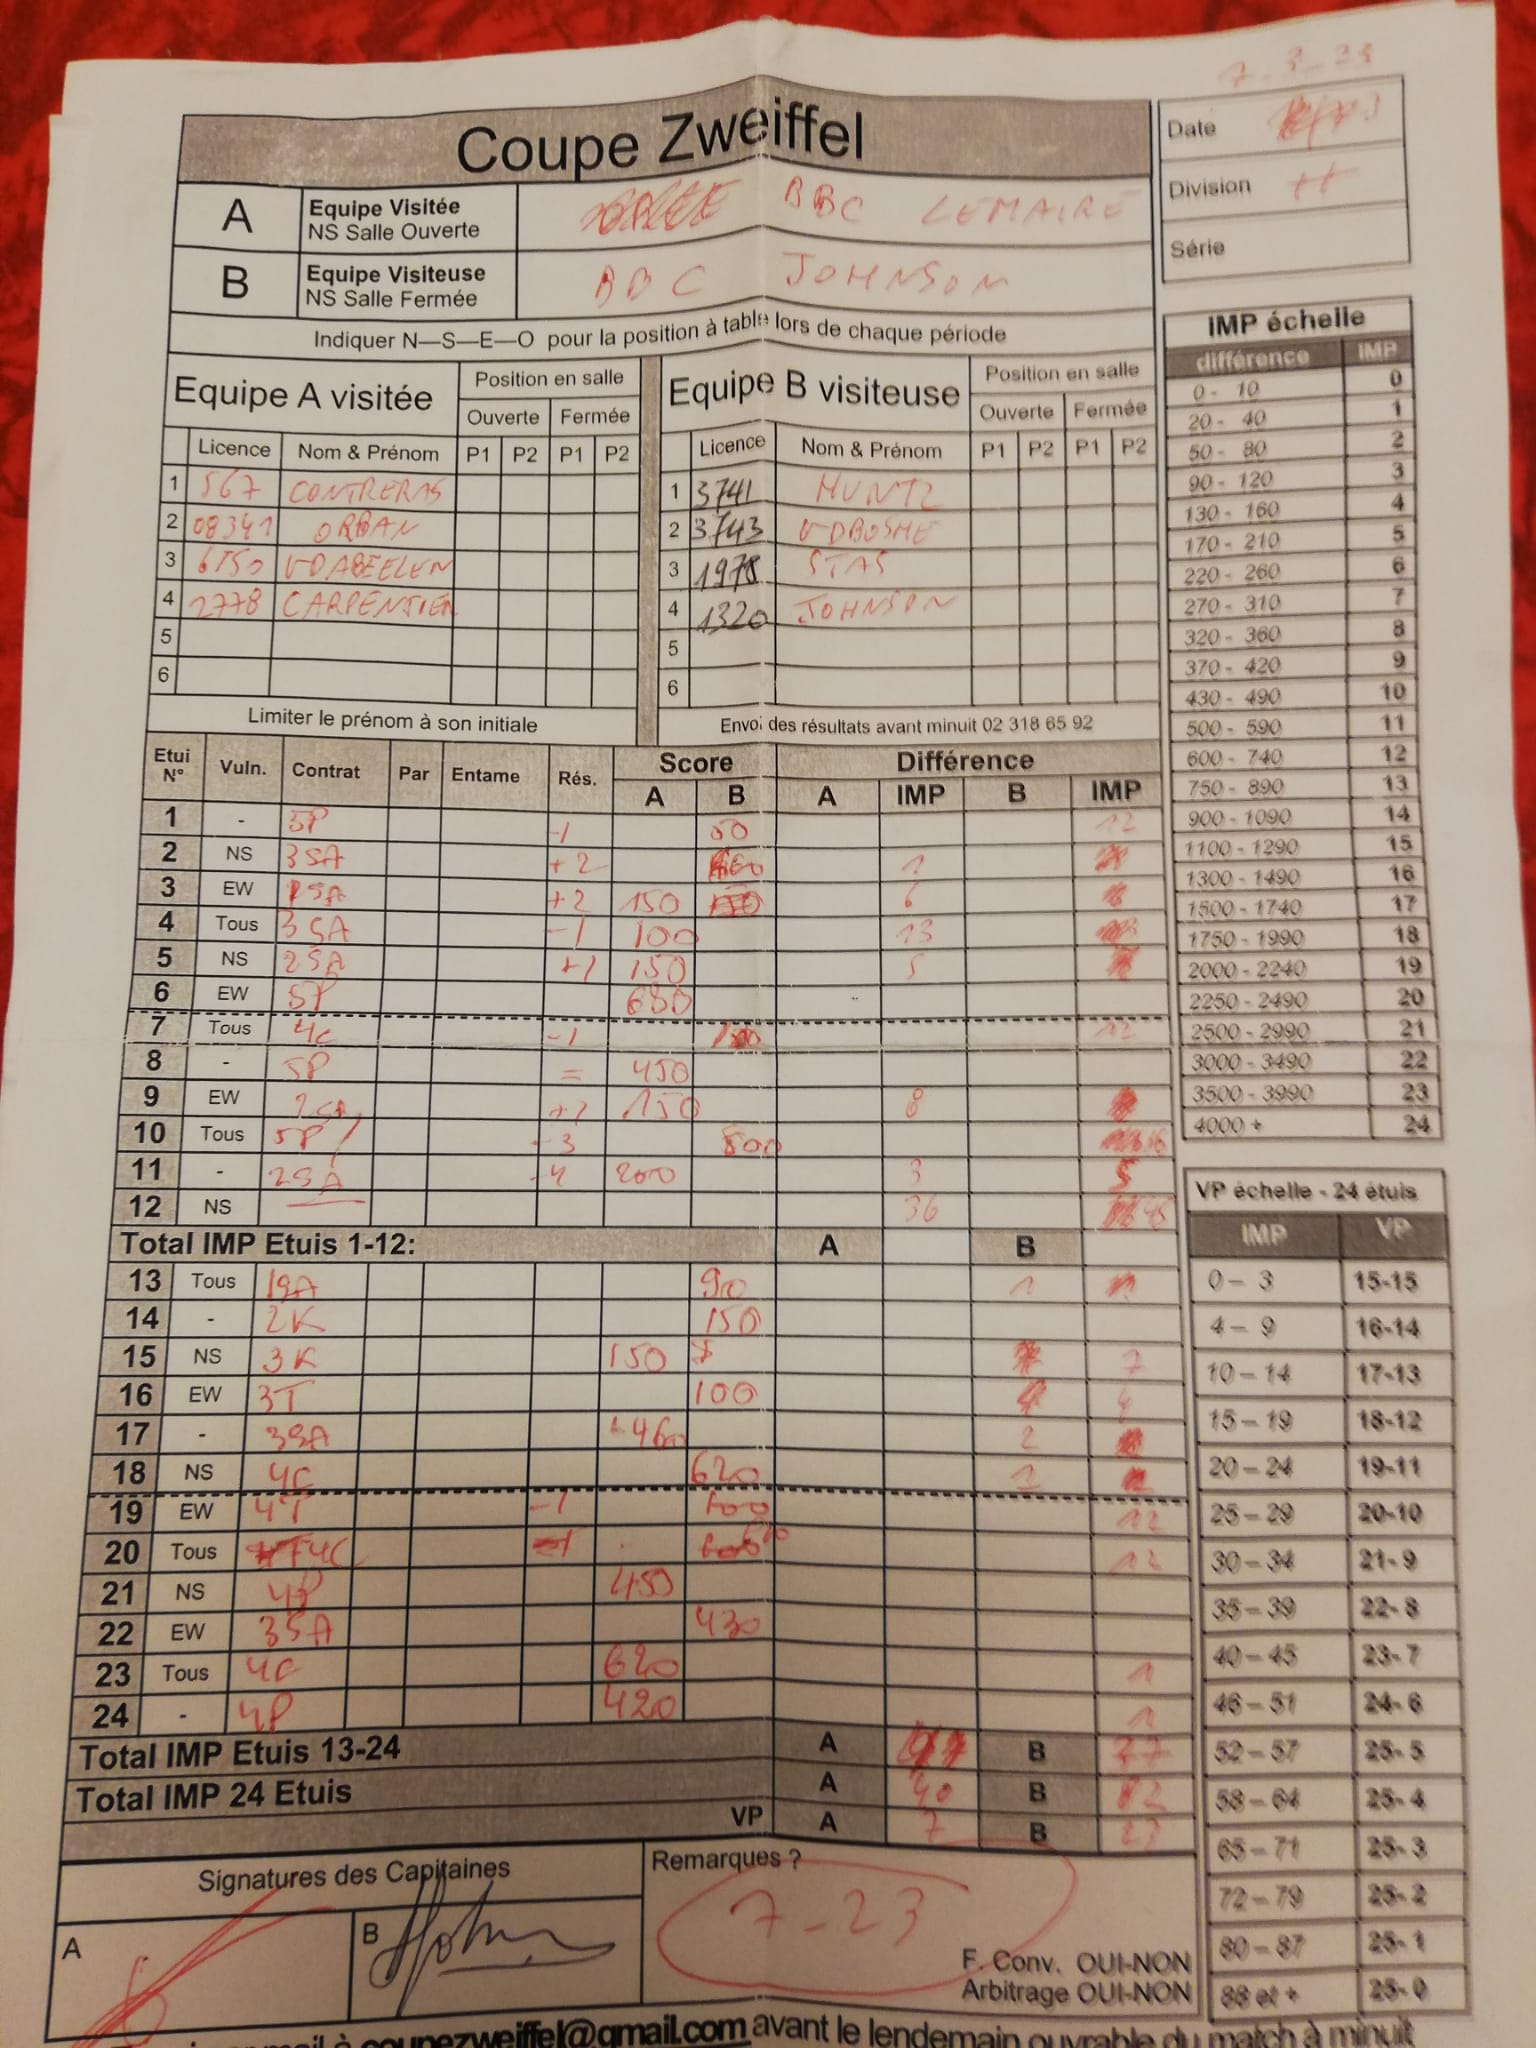 7-3-23
Coupe Zweiffel
Date
Division
Série
A Equipe Visitée BBC LEMAIRE
NS Salle Ouverte
B Equipe Visiteuse BBC JOHNSON
NS Salle Fermée
Indiquer N—S—E—O pour la position à table lors de chaque période
Equipe A visitée Position en salle
Ouverte Fermée
Licence Nom & Prénom P1 P2 P1 P2
1 567 CONTRERAS
2 08341 ORBAN
3 6150 VDABEELEN
4 2778 CARPENTIER
5
6
Limiter le prénom à son initiale
Equipe B visiteuse Position en salle
Ouverte Fermée
Licence Nom & Prénom P1 P2 P1 P2
1 3741 MUNTZ
2 3743 VDBOSHE
3 1978 STAS
4 1320 JOHNSON
5
6
Envoi des résultats avant minuit 02 318 65 92
Etui N° Vuln. Contrat Par Entame Rés. Score Différence
A B A IMP B IMP
1 - 5P -1 50 12
2 NS 3SA +2 1
3 EW 1SA +2 150 6
4 Tous 3SA -1 100 13
5 NS 2SA +1 150 5
6 EW 5P 680
7 Tous 4C -1 12
8 - 5P = 450
9 EW 2SA +1 150 8
10 Tous 5P -3 800
11 - 2SA -4 200 3
12 NS 36 45
Total IMP Etuis 1-12: A B
13 Tous 1SA 90 1
14 - 2K 150
15 NS 3K 150 7
16 EW 3T 100 4
17 - 3SA 460 2
18 NS 4C 620 1
19 EW 4T -1 100 12
20 Tous 4C 620 12
21 NS 4P 450
22 EW 3SA 430
23 Tous 4C 620 1
24 - 4P 420 1
Total IMP Etuis 13-24 A B 37
Total IMP 24 Etuis A 40 B 82
VP A 7 B 23
Signatures des Capitaines
A B
Remarques ?
7-23
F. Conv. OUI-NON
Arbitrage OUI-NON
IMP échelle
différence IMP
0 - 10 0
20 - 40 1
50 - 80 2
90 - 120 3
130 - 160 4
170 - 210 5
220 - 260 6
270 - 310 7
320 - 360 8
370 - 420 9
430 - 490 10
500 - 590 11
600 - 740 12
750 - 890 13
900 - 1090 14
1100 - 1290 15
1300 - 1490 16
1500 - 1740 17
1750 - 1990 18
2000 - 2240 19
2250 - 2490 20
2500 - 2990 21
3000 - 3490 22
3500 - 3990 23
4000 + 24
VP échelle - 24 étuis
IMP VP
0 – 3 15-15
4 – 9 16-14
10 – 14 17-13
15 – 19 18-12
20 – 24 19-11
25 – 29 20-10
30 – 34 21- 9
35 – 39 22- 8
40 – 45 23- 7
46 – 51 24- 6
52 – 57 25- 5
58 – 64 25- 4
65 – 71 25- 3
72 – 79 25- 2
80 – 87 25- 1
88 et + 25- 0
mail à coupezweiffel@gmail.com avant le lendemain ouvrable du match à minuit